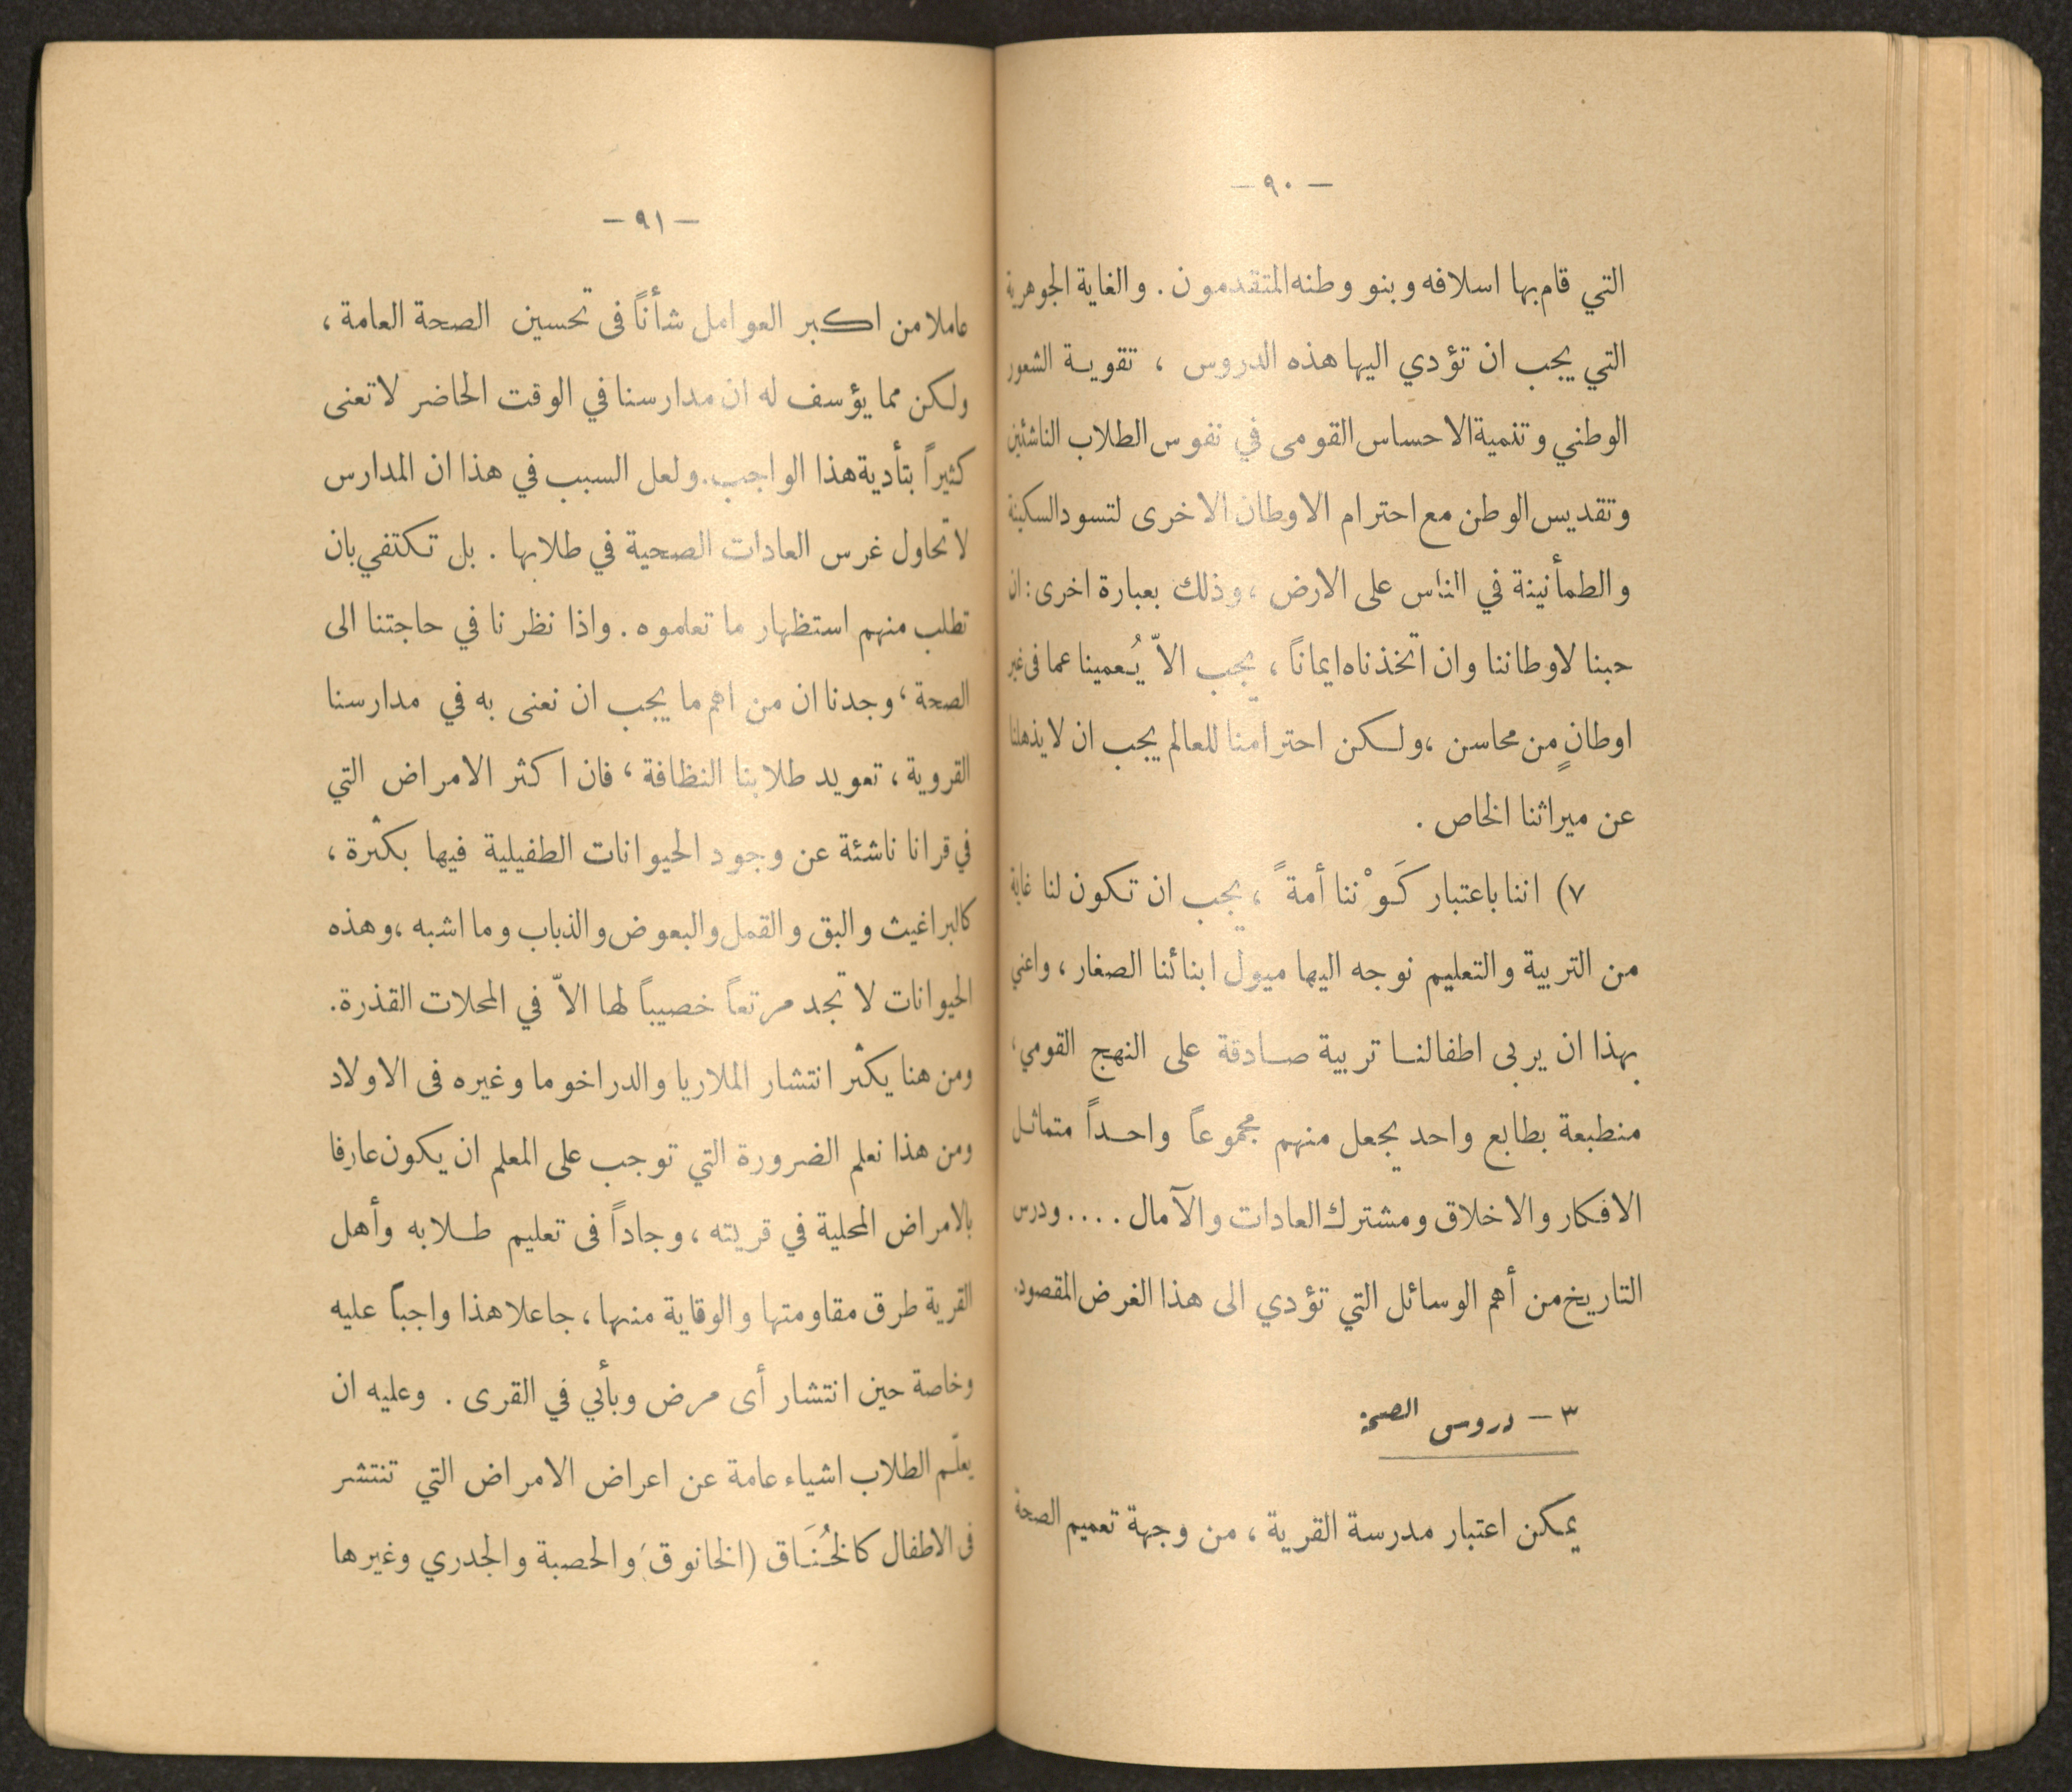 — ٩٠ —
التي قام بها اسلافه وبنو وطنه المتقدمون . والغاية الجوهرية
التي يجب ان تؤدي اليها هذه الدروس ، تقوية الشعور
الوطني وتنمية الاحساس القومى في نفوس الطلاب الناشئين
وتقديس الوطن مع احترام الاوطان الاخرى لتسود السكينة
والطمأنينة في الناس على الارض ، وذلك بعبارة اخرى : ان
حبنا لاوطاننا وان اتخذناه ايماناً ، يجب الاّ يُعمينا عما فى غير
اوطانٍ من محاسن ، ولكن احترامنا للعالم يجب ان لا يذهلنا
عن ميراثنا الخاص .
٧) اننا باعتبار كَوْننا أمةً ، يجب ان تكون لنا غاية
من التربية والتعليم نوجه اليها ميول ابنائنا الصغار ، واعني
بهذا ان يربى اطفالنا تربية صادقة على النهج القومي ،
منطبعة بطابع واحد يجعل منهم مجموعاً واحداً متماثل
الافكار والاخلاق ومشترك العادات والآمال .... ودرس
التاريخ من أهم الوسائل التي تؤدي الى هذا الغرض المقصود .
٣ — دروس الصحة
يمكن اعتبار مدرسة القرية ، من وجهة تعميم الصحة
— ٩١ —
عاملا من اكبر العوامل شأناً فى تحسين الصحة العامة ،
ولكن مما يؤسف له ان مدارسنا في الوقت الحاضر لا تعنى
كثيراً بتأدية هذا الواجب . ولعل السبب في هذا ان المدارس
لا تحاول غرس العادات الصحية في طلابها . بل تكتفي بان
تطلب منهم استظهار ما تعلموه . واذا نظرنا في حاجتنا الى
الصحة ، وجدنا ان من اهم ما يجب ان نعنى به في مدارسنا
القروية ، تعويد طلابنا النظافة ، فان اكثر الامراض التي
في قرانا ناشئة عن وجود الحيوانات الطفيلية فيها بكثرة ،
كالبراغيث والبق والقمل والبعوض والذباب وما اشبه ، وهذه
الحيوانات لا تجد مرتعاً خصيباً لها الاّ في المحلات القذرة .
ومن هنا يكثر انتشار الملاريا والدراخوما وغيره فى الاولاد
ومن هذا نعلم الضرورة التي توجب على المعلم ان يكون عارفا
بالامراض المحلية في قريته ، وجاداً فى تعليم طلابه وأهل
القرية طرق مقاومتها والوقاية منها ، جاعلا هذا واجباً عليه
وخاصة حين انتشار أى مرض وبأئي في القرى . وعليه ان
يعلّم الطلاب اشياء عامة عن اعراض الامراض التي تنتشر
فى الاطفال كالخُنَاق (الخانوق) والحصبة والجدري وغيرها